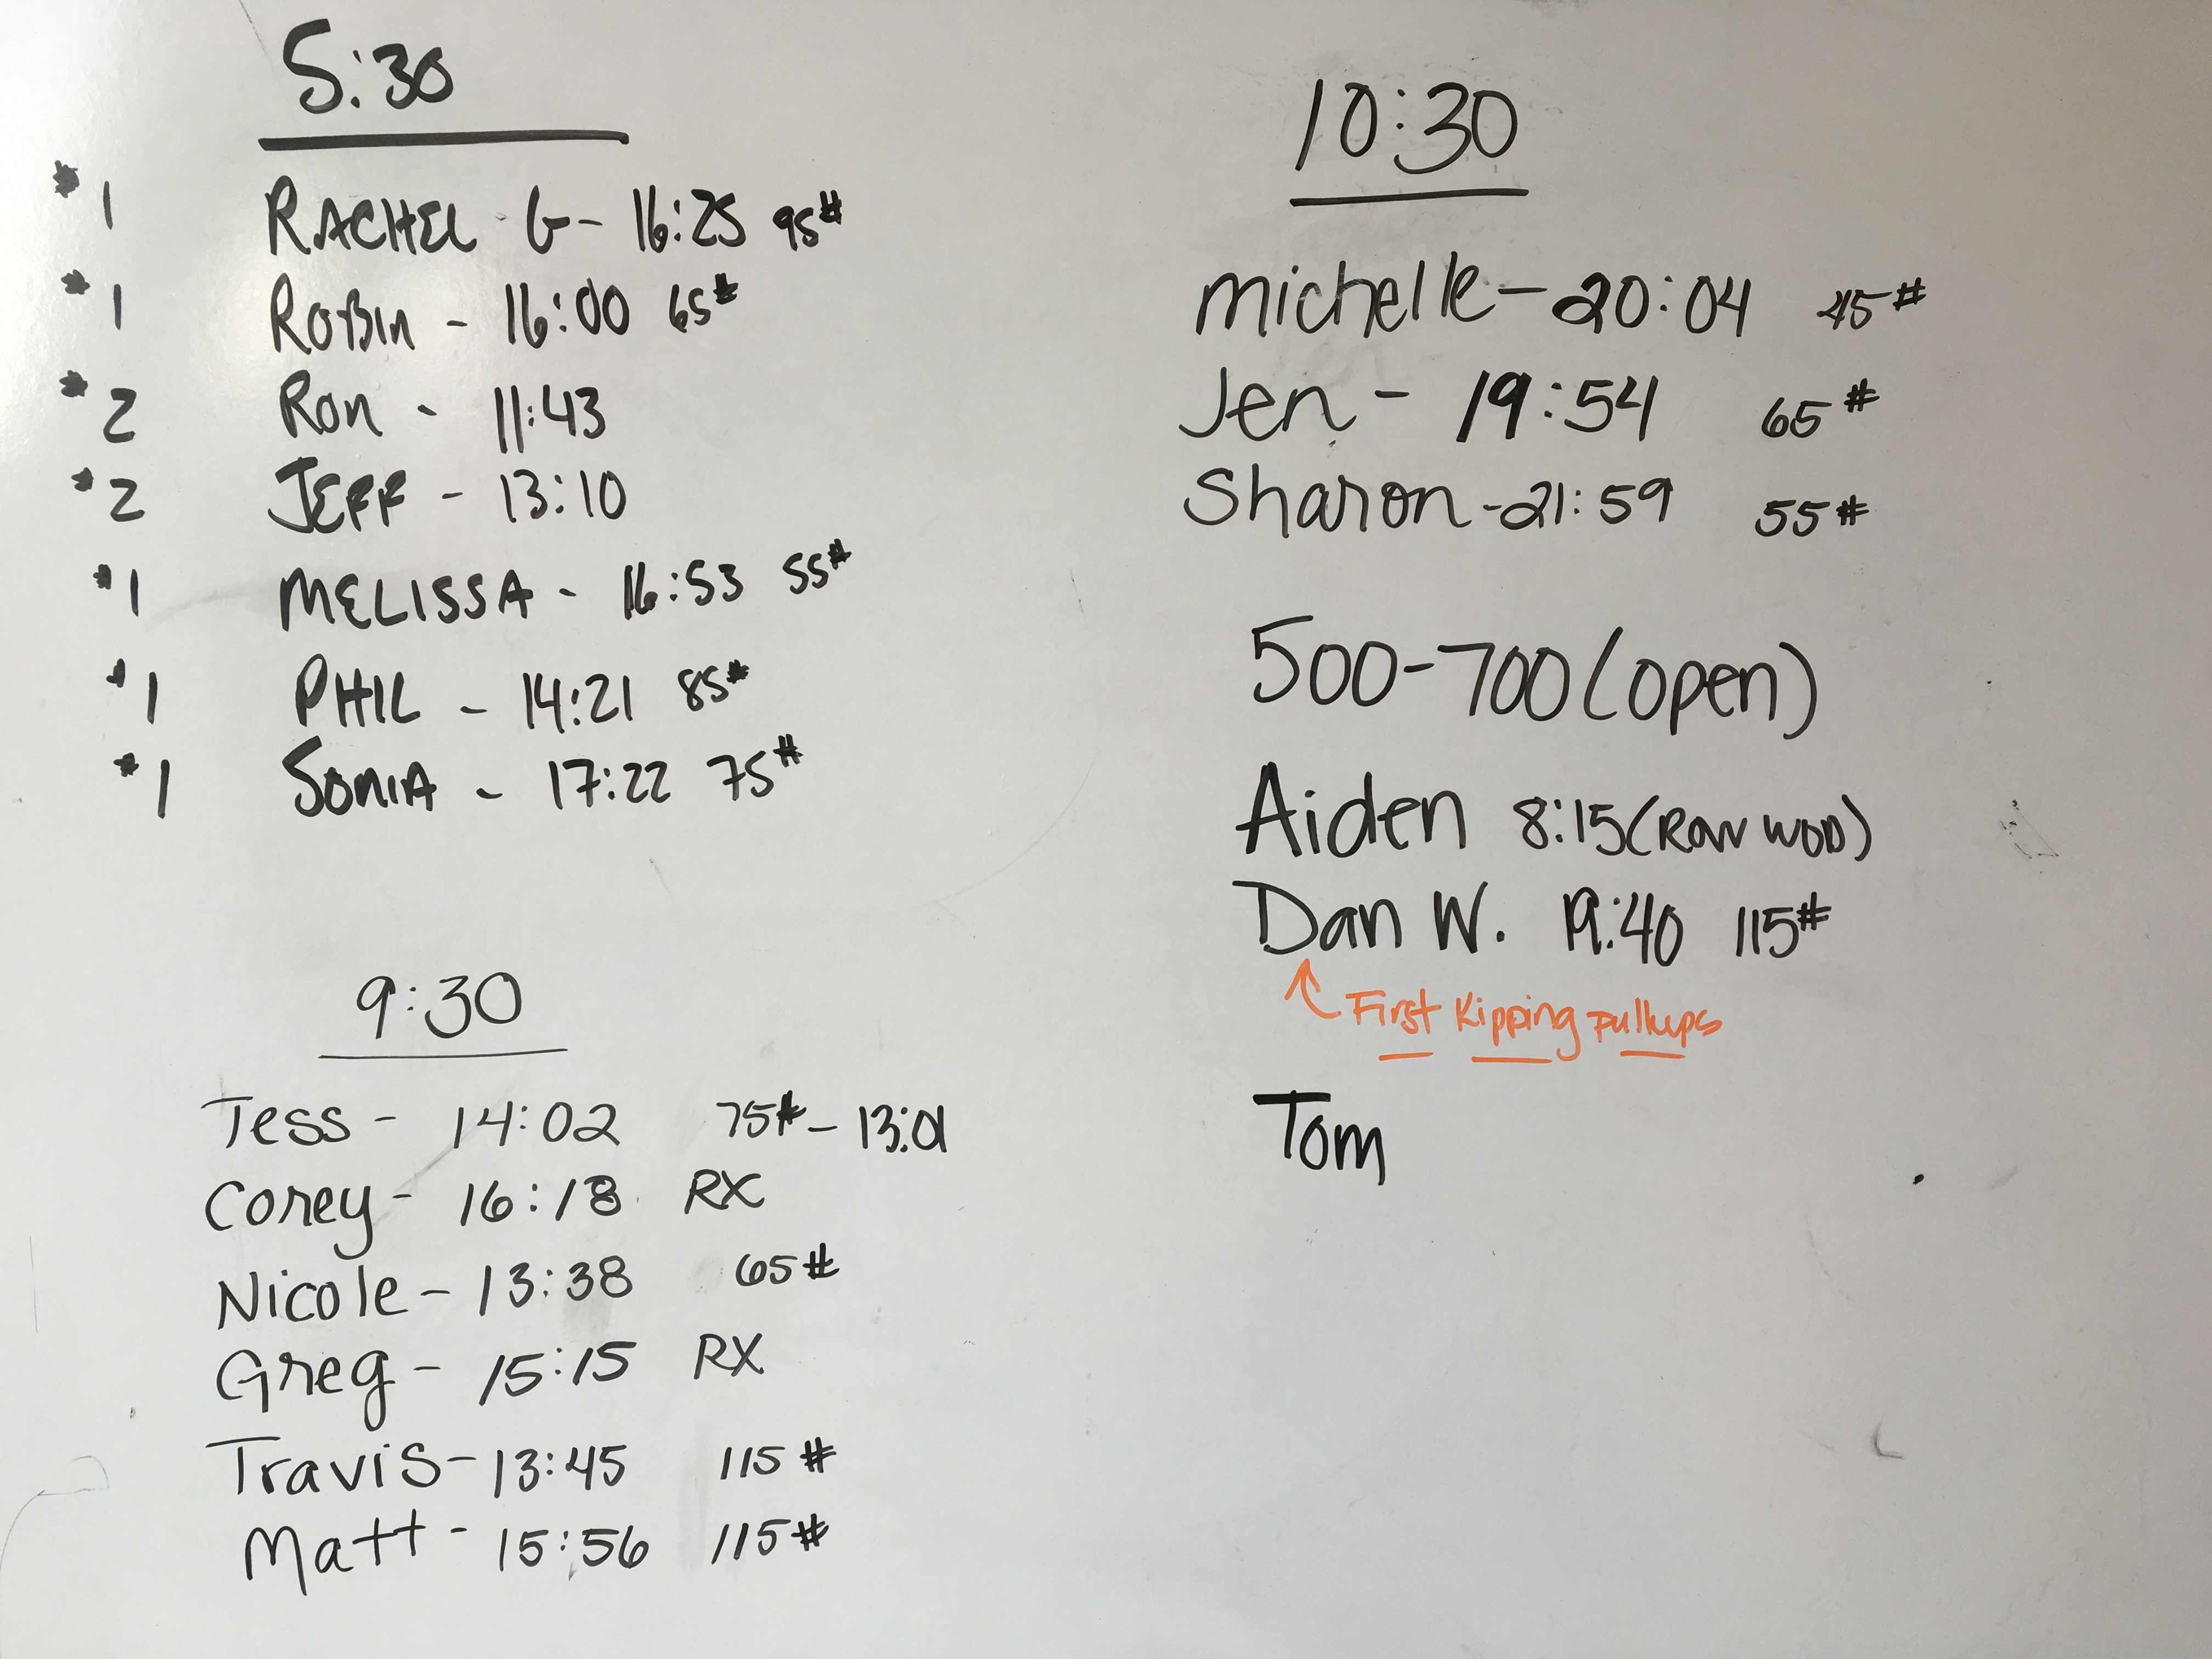 5:30
*1 RACHEL G - 16:25 95#
*1 ROBIN - 16:00 65#
*2 RON - 11:43
*2 JEFF - 13:10
*1 MELISSA - 16:53 55#
*1 PHIL - 14:21 85#
*1 SONIA - 17:22 75#
9:30
Tess - 14:02 75# - 13:01
Corey - 16:18 RX
Nicole - 13:38 65#
Greg - 15:15 RX
Travis - 13:45 115#
Matt - 15:56 115#
10:30
michelle - 20:04 45#
Jen - 19:54 65#
Sharon - 21:59 55#
500-700 (open)
Aiden 8:15 (ROW WOD)
Dan W. 19:40 115#
First Kipping pullups
Tom